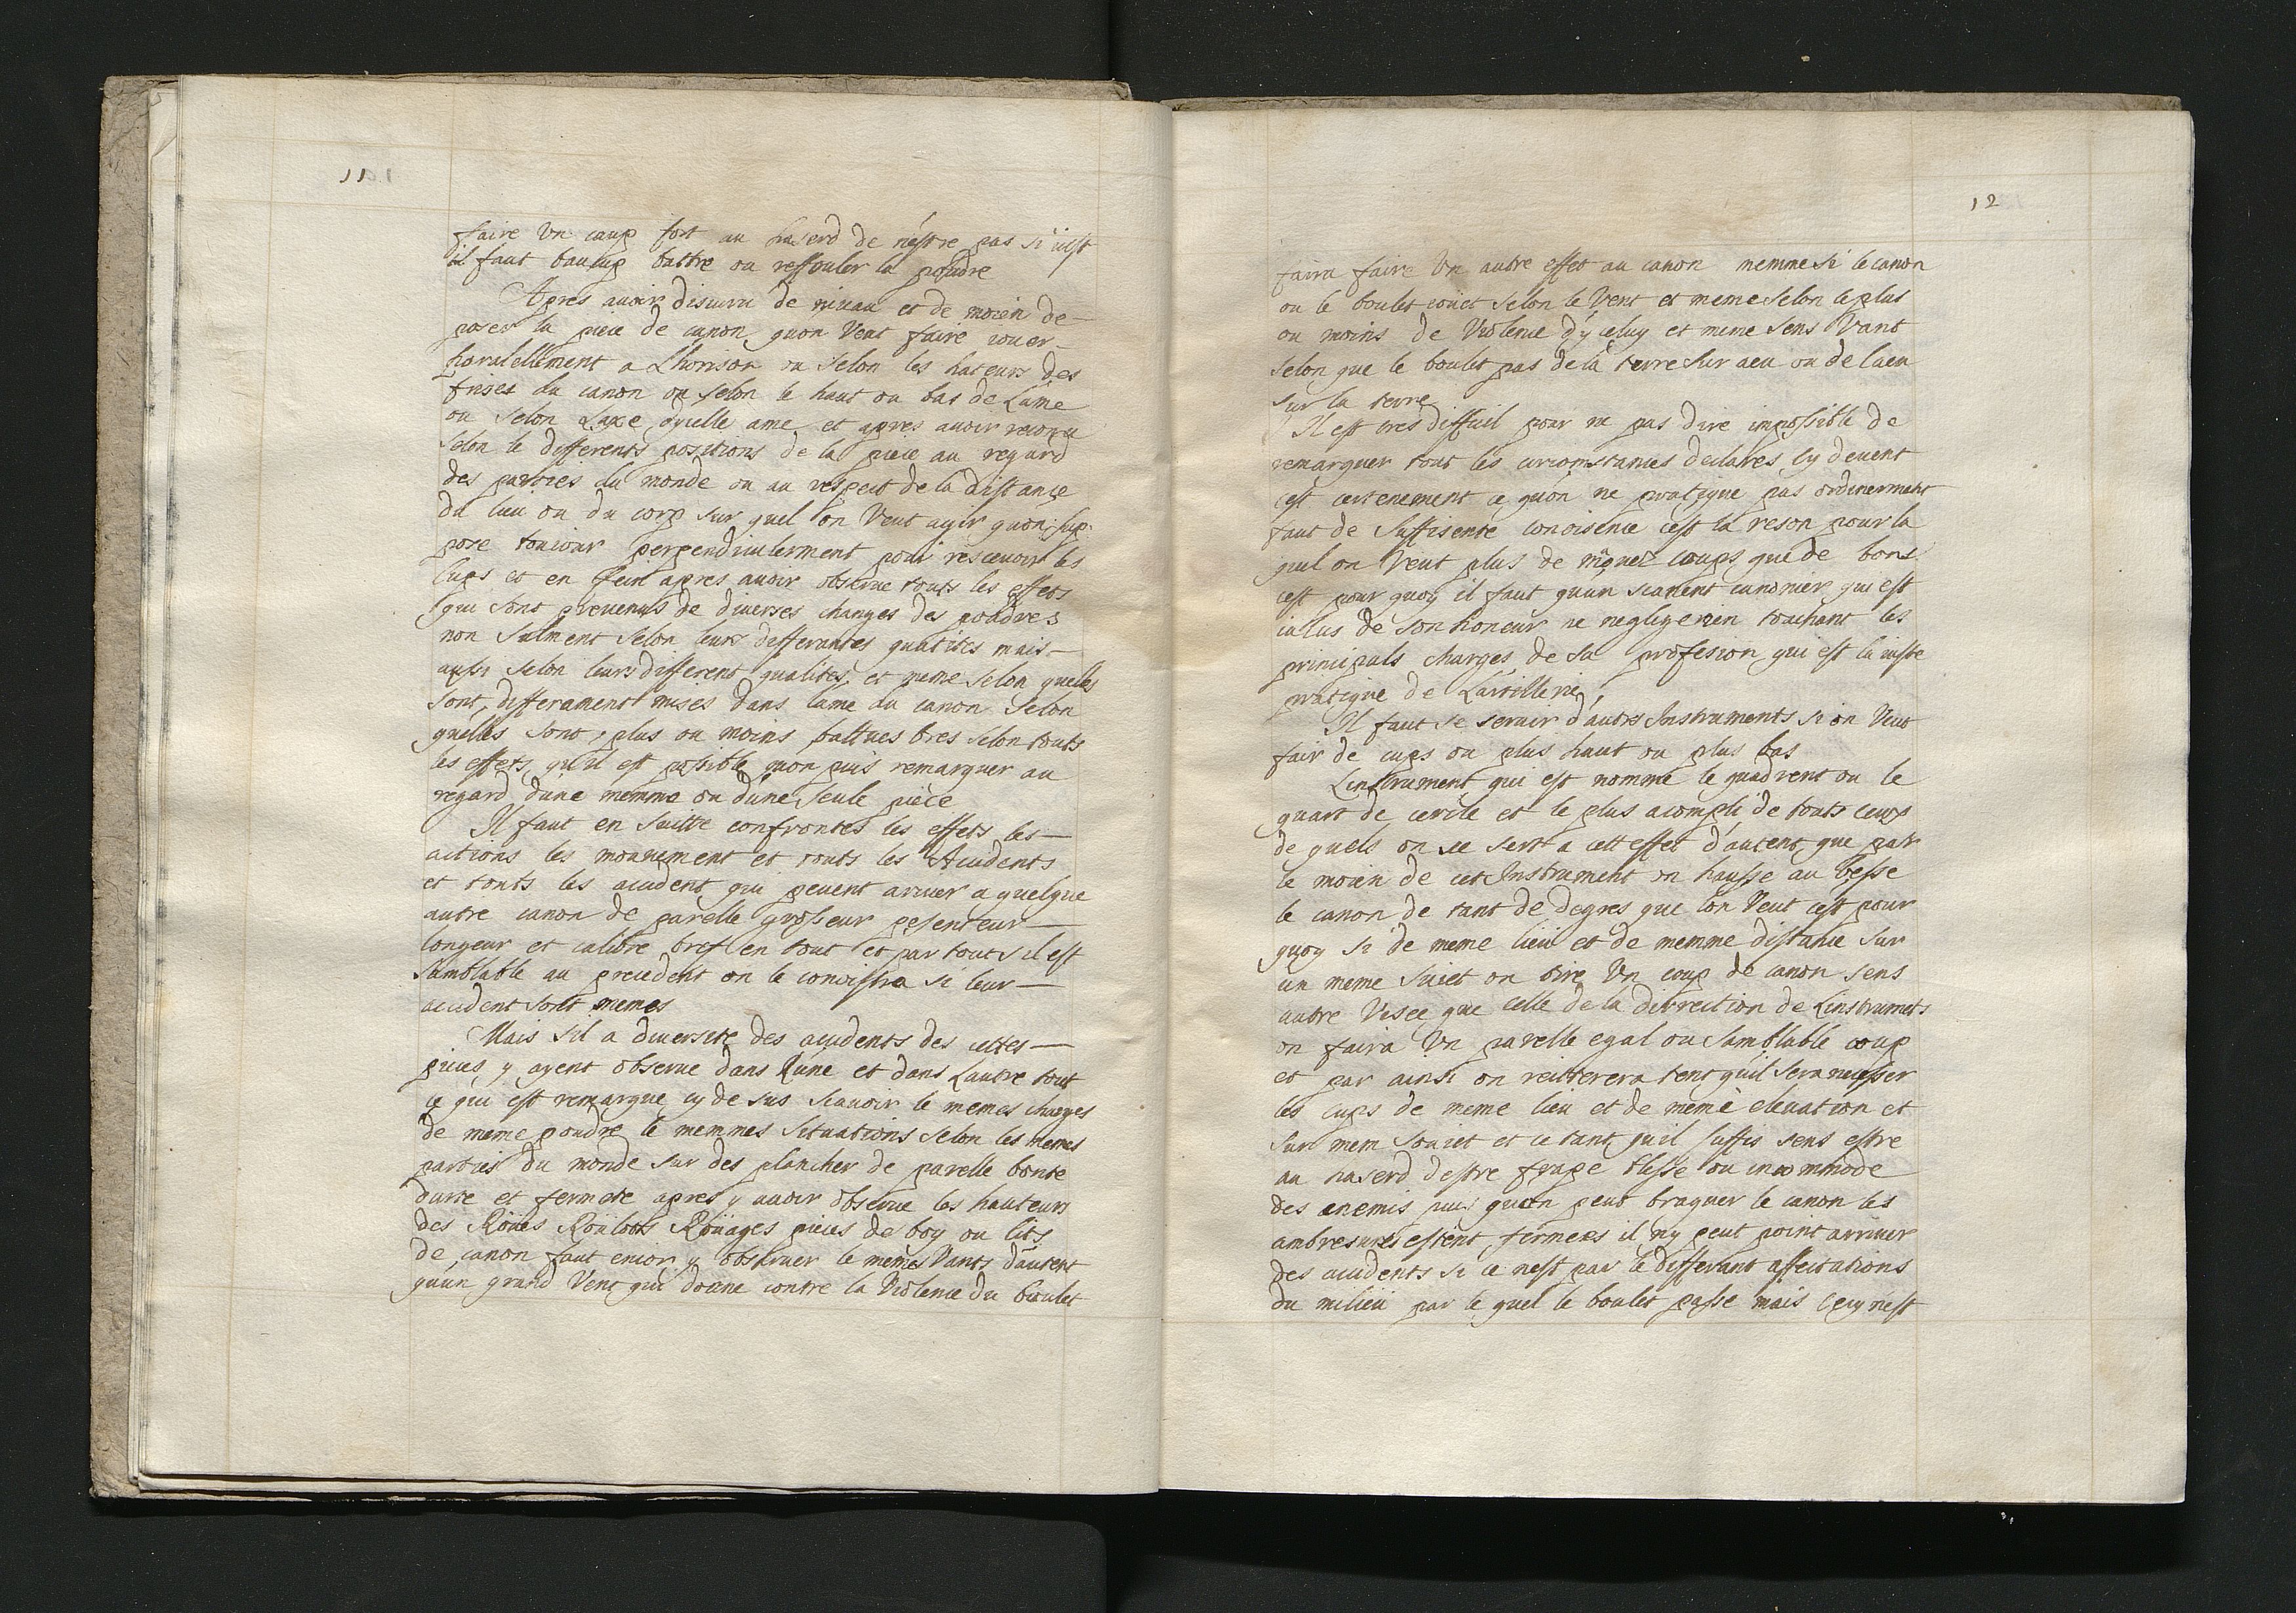 faire Vn coup fort au haserd de n'estre pas si uist
il faut baucup battre ou reffouler la poudre
Apres auoir discuru de niueau et de moien de
poser la piece de canon quon Veut faire iouer
paralellement a Lhorison ou selon les hateurs des
frises du canon ou selon le haut ou bas de Lame
ou selon Laxe dycelle ame et apres auoir reconu
selon le differents positions de la piece au regard
des parties du monde ou au respect de la distance
du lieu ou du corp sur quel on Veut agir quon sup
pose touiour perpendiculerment pour resceuoir les
cups et en fein apres auoir obserue touts les effets
qui sont preuenus de diuerses charges des poudres
non sulment selon leurs defferantes quatites mais
aussi selon leurs different qualites et meme selon quelles
sont differament mises dans lame du canon selon
quelles sont plus ou moins battues bres selon touts
les effets qu'il est possible quon puis remarquer au
regard dune memme ou dune seule piece
Il faut en suitte confrontes les effets les
actions les mouuement et touts les Accidents
et touts les accident qui peuent ariuer a quelque
autre canon de parelle grosseur pesenteur
longeur et calibre bref en tout et par tout s il est
samblable au precedent on le conoistra si leur
accident sont memes
Mais sil a diuersete des accidents des celtes
pieces y ayent obserue dans Lune et dans Lautre tout
ce qui est remarque cy de sus scauoir le memes charges
de meme poudre le memmes situations selon les memes
parties du monde sur des plancher de parelle bonte
durte et fermete apres y auoir obserue les hauteurs
des Roües Roüloots Roüages pieces de boy ou lits
de canon faut encor y obseruer le memes Vants dautent
quun grand Vent qui donne contre la Violence du boulet
12
faira faire Vn autre effet au canon memme si le canon
ou le boulet iouet selon le Vent et meme selon le plus
ou moins de Violence d'yceluy et meme sens Vant
selon que le boulet pas de la terre sur aeu ou de laeu
sur la terre
Il est tres difficil pour ne pas dire impossible de
remarquer tout les circonstances declares cy deuent
cest certenement ce quon ne pratique pas ordinerment
faut de suffisente conoisence cest la reson pour la
quel on Veut plus de mquez coups que de bons
cest pour quoy il faut quun scauent canonier qui est
ialus de son honeur ne neglige rien touchant les
principals charges de sa profesion qui est la iuste
pratique de Lartillerie
Il faut se seruir d'autrs Instruments si on Veut
fair de cups ou plus haut ou plus bas
Linstrument qui est nomme le quadrent ou le
quart de cercle et le plus acompli de touts ceux
de quels on se sert a cett effet d'autent que par
le moien de cet Instrument on hausse au besse
le canon de tant de degres que lon Veut cest pour
quoy si de meme lieü et de memme distance sur
un meme suiet on tire Vn coup de canon sens
autre Visee que celle de la dirrection de Linstrumets
on faira Vn parelle egal ou samblable coup
et par ainsi on reitterera tent quil sera necesser
les cups de meme lieu et de meme eleuation et
sur mem souiet et ce tant quil suffis sens estre
au haserd destre frape blesse ou incommode
des enemis puis quon peut braquer le canon les
ambresures estent fermees il ny peut point arriuer
des accidents si ce nest par le differant affectations
du milieü par le quel le boulet passe mais cecy nest